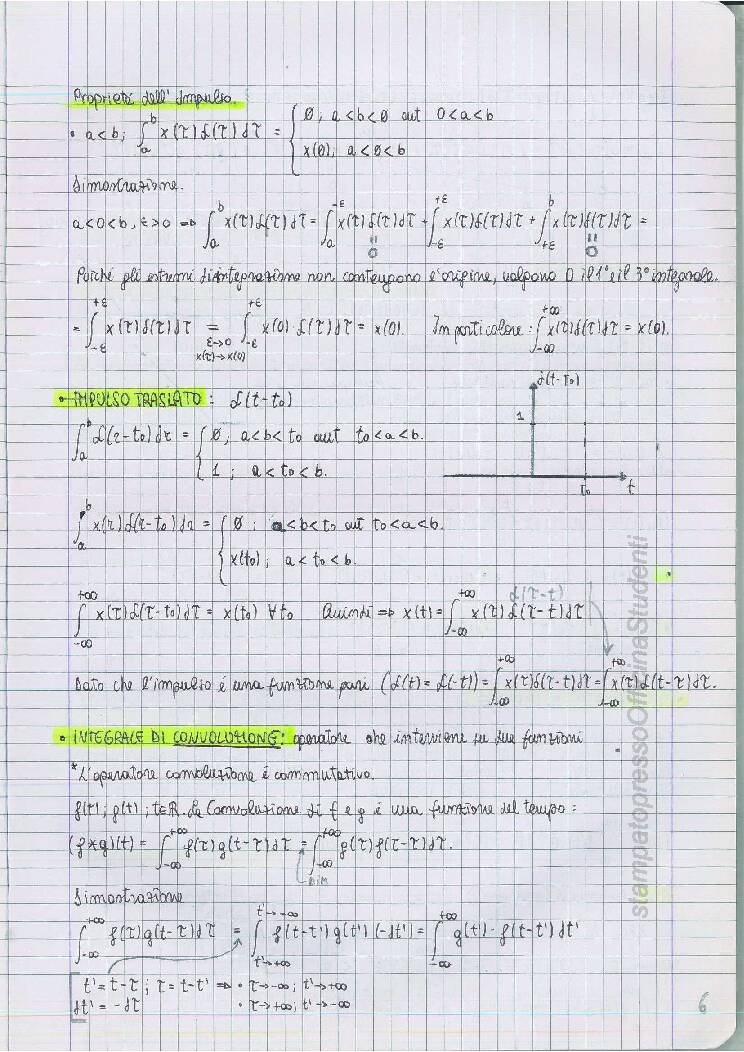 Proprietà dell'Impulso.
• a<b; ∫_a^b x(τ)δ(τ)dτ = { 0; a<b<0 aut 0<a<b
x(0); a<0<b
Dimostrazione.
a<0<b, ε>0 ⇒ ∫_a^b x(τ)δ(τ)dτ = ∫_a^{-ε} x(τ)δ(τ)dτ + ∫_{-ε}^{+ε} x(τ)δ(τ)dτ + ∫_{+ε}^b x(τ)δ(τ)dτ =
= 0 = 0
Poiché gli estremi d'integrazione non contengono l'origine, valgono 0 il 1° e il 3° integrale.
= ∫_{-ε}^{+ε} x(τ)δ(τ)dτ = ∫_{-ε}^{+ε} x(0) δ(τ)dτ = x(0). In particolare: ∫_{-∞}^{+∞} x(τ)δ(τ)dτ = x(0).
ε→0
x(τ)→x(0)
• IMPULSO TRASLATO: δ(t-t₀)
δ(t-T₀)
1
T₀ t
∫_a^b δ(τ-t₀)dτ = { 0; a<b<t₀ aut t₀<a<b.
1; a<t₀<b.
∫_a^b x(τ)δ(τ-t₀)dτ = { 0; a<b<t₀ aut t₀<a<b.
x(t₀); a<t₀<b.
δ(τ-t)
∫_{-∞}^{+∞} x(τ)δ(τ-t₀)dτ = x(t₀) ∀t₀ Quindi ⇒ x(t) = ∫_{-∞}^{+∞} x(τ) δ(τ-t)dτ
Dato che l'impulso è una funzione pari (δ(t) = δ(-t)) = ∫_{-∞}^{+∞} x(τ)δ(τ-t)dτ = ∫_{-∞}^{+∞} x(τ)δ(t-τ)dτ.
• INTEGRALE DI CONVOLUZIONE: operatore che interviene su due funzioni
*L'operatore convoluzione è commutativo.
f(t); g(t); t∈R. La Convoluzione di f e g è una funzione del tempo:
(f*g)(t) = ∫_{-∞}^{+∞} f(τ)g(t-τ)dτ = ∫_{-∞}^{+∞} g(τ)f(τ-τ)dτ.
DIM
Dimostrazione
∫_{-∞}^{+∞} f(τ)g(t-τ)dτ = ∫_{t'→+∞}^{t'→-∞} f(t-t')g(t')(-dt') = ∫_{-∞}^{+∞} g(t')·f(t-t')dt'
t' = t-τ; τ = t-t' ⇒ • τ→-∞; t'→+∞
dt' = -dτ • τ→+∞; t'→-∞
stampatopressoOfficinaStudenti
6